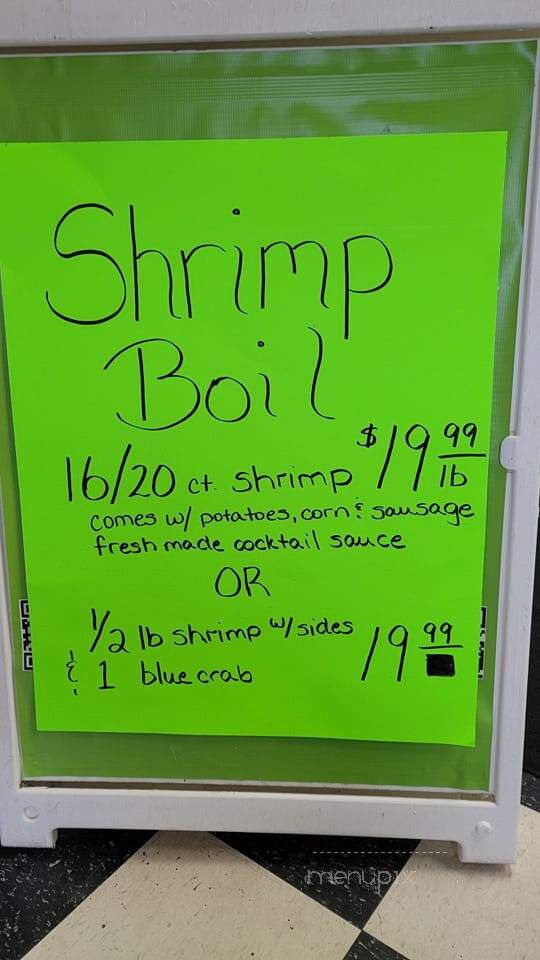 Shrimp
Boil
16/20 ct. shrimp $19 99/lb
comes w/ potatoes, corn & sausage
fresh made cocktail sauce
OR
1/2 lb shrimp w/sides 19 99
& 1 blue crab
menupix